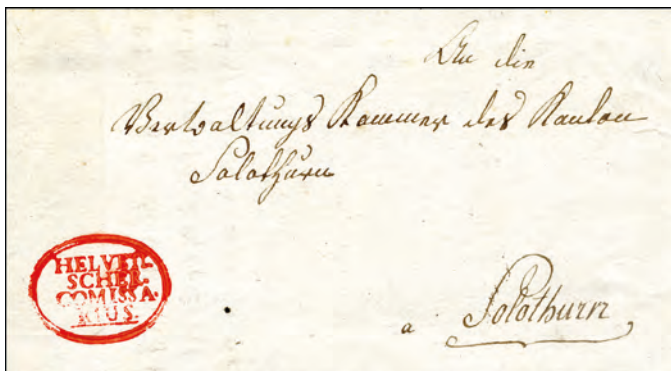 An die
Verwaltungs Kammer des Kanton
Solothurn
HELVETI-
SCHER.
COMISSA.
RIUS.
a Solothurn